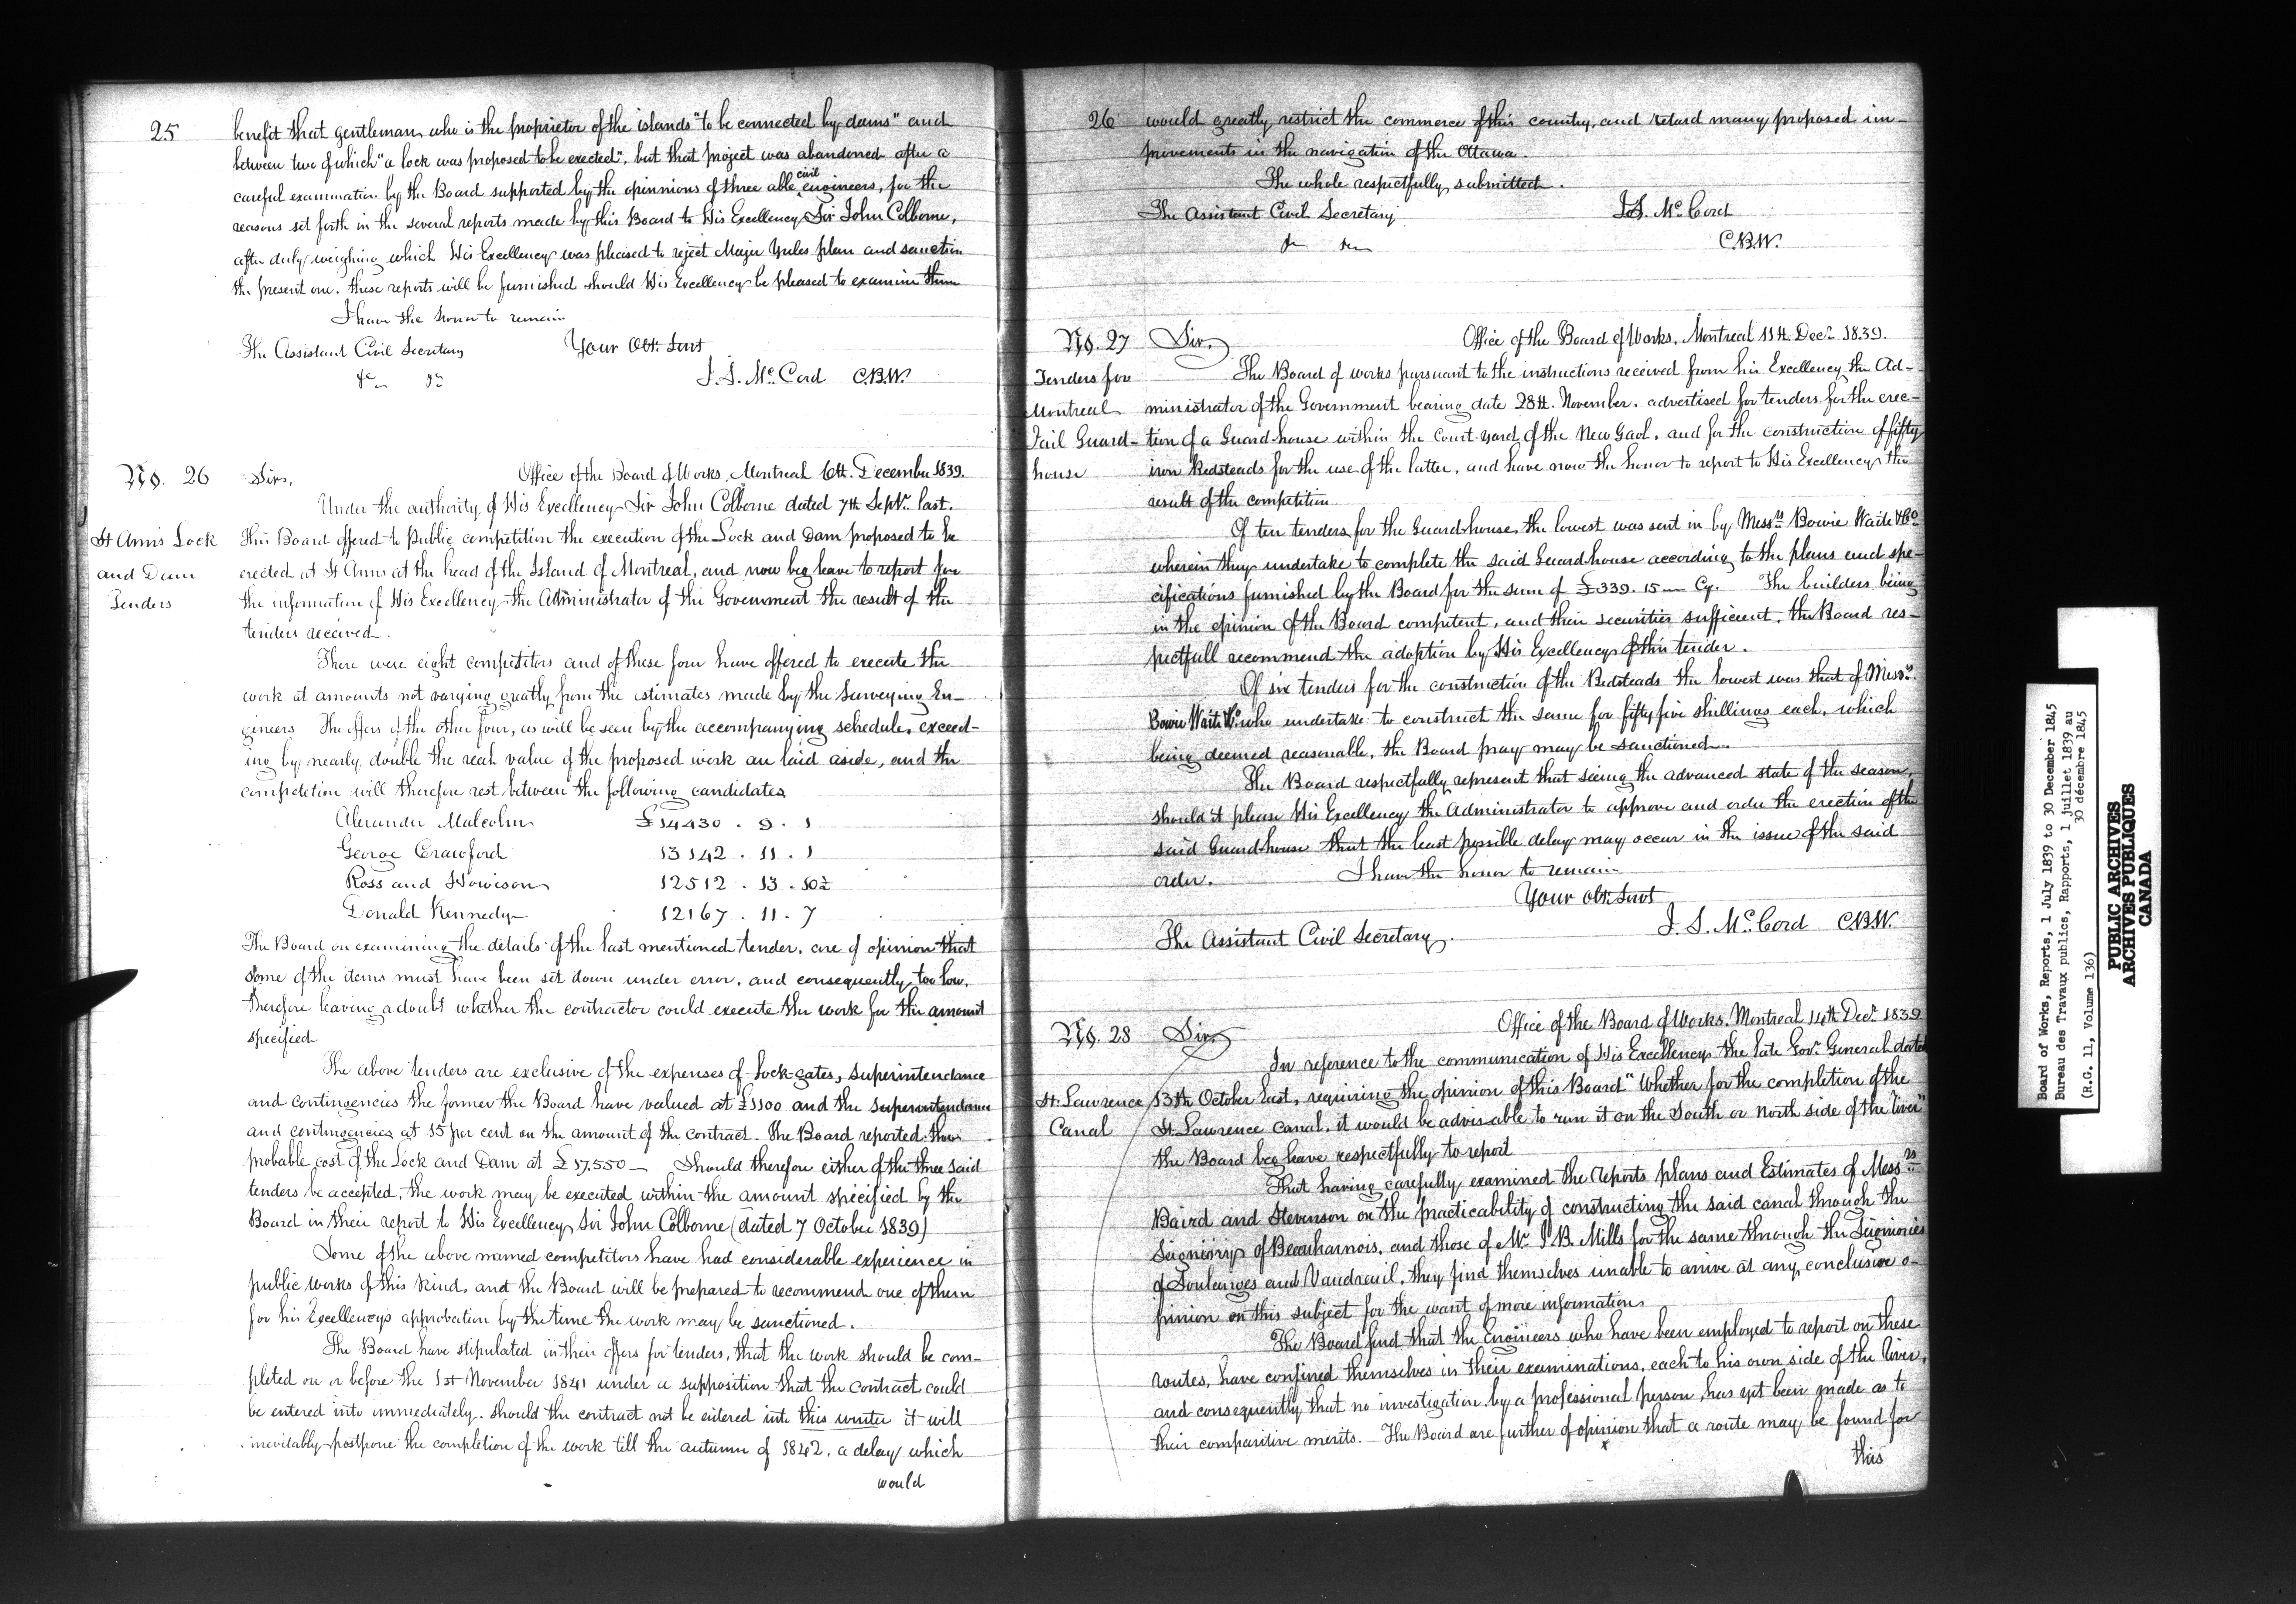 25
benefit that gentleman who is the proprietor of the islands "to be connected by dams" and
between two of which "a lock was proposed to be erected", but that project was abandoned after a
careful examination by the Board supported by the opinnions of three able civil engineers, for the
reasons set forth in the several reports made by this Board to His Excellency Sir John Colborne,
after duly weighing which His Excellency was pleased to reject Major Yules plan and sanction
the present one. these reports will be furnished should His Excellency be pleased to examine them
I have the honor to remain
The Assistant Civil Secretary Your Obt. Servt
&c &c J. S. McCord C.B.W.
No. 26 Sir, Office of the Board of Works, Montreal 6th. December 1839.
Under the authority of His Excellency Sir John Colborne dated 7th Septr. last.
St Anns Lock This Board offered to Public competition the execution of the Lock and Dam proposed to be
and Dam erected at St Anns at the head of the Island of Montreal, and now beg leave to report for
Tenders the information of His Excellency the Administrator of the Government the result of the
tenders received.
There were eight competitors and of these four have offered to execute the
work at amounts not varying greatly from the estimates made by the Surveying En-
gineers The offers of the other four, as will be seen by the accompanying schedule, exceed-
ing by nearly double the real value of the proposed work are laid aside, and the
competetion will therefore rest between the following candidates
Alexander Malcolm £14430 . 9 . 1
George Crawford 13142 . 11 . 1
Ross and Howison 12512 . 13 . 10½
Donald Kennedy 12167 . 11 . 7
The Board on examining the details of the last mentioned tender, are of opinion that
some of the items must have been set down under error, and consequently too low,
therefore leaving a doubt whether the contractor could execute the work for the amount
specified
The above tenders are exclusive of the expenses of Lock-gates, superintendance
and contingencies the former the Board have valued at £1100 and the superintendance
and contingencies at 15 per cent on the amount of the contract. The Board reported the
probable cost of the Lock and Dam at £17,550 — Should therefore either of the three said
tenders be accepted, the work may be executed within the amount specified by the
Board in their report to His Excellency Sir John Colborne (dated 7 October 1839)
Some of the above named competitors have had considerable experience in
public works of this kind, and the Board will be prepared to recommend one of them
for his Excellencys approbation by the time the work may be sanctioned.
The Board have stipulated in their offers for tenders, that the work should be com-
pleted on or before the 1st November 1841 under a supposition that the contract could
be entered into immediately. should the contract not be entered into this winter it will
inevitably postpone the completion of the work till the autumn of 1842. a delay which
would
26 would greatly restrict the commerce of this country, and retard many proposed im-
provements in the navigation of the Ottawa.
The whole respectfully submitted.
The Assistant Civil Secretary J.S. McCord
&c &c C.B.W.
No. 27 Sir, Office of the Board of Works, Montreal 11th Decr. 1839.
Tenders for The Board of works pursuant to the instructions received from his Excellency the Ad-
Montreal ministrator of the Government bearing date 28th. November. advertised for tenders for the erec-
Jail Guard- tion of a Guard-house within the court-yard of the New Gaol, and for the construction of fifty
house iron Bedsteads for the use of the latter, and have now the honor to report to His Excellency the
result of the competition
Of ten tenders, for the Guardhouse, the lowest was sent in by Messrs Bowie Waite & Co
wherein they undertake to complete the said Guardhouse according to the plans and spe-
cifications furnished by the Board for the sum of £339. 15 — Cy. The builders being
in the opinion of the Board competent, and their securities sufficient, the Board res-
pectfull recommend the adoption by His Excellency of this tender.
Of six tenders for the construction of the Bedsteads the lowest was that of Messrs.
Bowie Waite & Co who undertake to construct the same for fifty five shillings each, which
being deemed reasonable, the Board pray may be sanctioned.
The Board respectfully represent that seeing the advanced state of the season,
should it please His Excellency the Administrator to approve and order the erection of the
said Guardhouse that the least possible delay may occur in the issue of the said
order. I have the honor to remain
Your Obt. Servt
The Assistant Civil Secretary. J. S. McCord C.B.W.
No. 28 Sir, Office of the Board of Works, Montreal 14th Decr. 1839
In reference to the communication of His Excellency the late Govr. General dated
St. Lawrence 13th October last, requiring the opinion of this Board "Whether for the completion of the
Canal St. Lawrence canal, it would be advisable to run it on the South or North side of the river"
the Board beg leave respectfully to report
That having carefully examined the Reports plans and Estimates of Messrs
Baird and Stevenson on the practicability of constructing the said canal through the
Signiory of Beauharnois, and those of Mr. J B. Mills for the same through the Signiories
of Soulanges and Vaudreuil, they find themselves unable to arrive at any conclusive o-
pinion on this subject for the want of more information
The Board find that the Engineers who have been employed to report on these
routes, have confined themselves in their examinations, each to his own side of the river,
and consequently that no investigation by a professional person, has yet been made as to
their comparitive merits. The Board are further of opinion that a route may be found for
this
Board of Works, Reports, 1 July 1839 to 30 December 1845
Bureau des Travaux publics, Rapports, 1 juillet 1839 au
30 décembre 1845
(R.G. 11, Volume 136)
PUBLIC ARCHIVES
ARCHIVES PUBLIQUES
CANADA